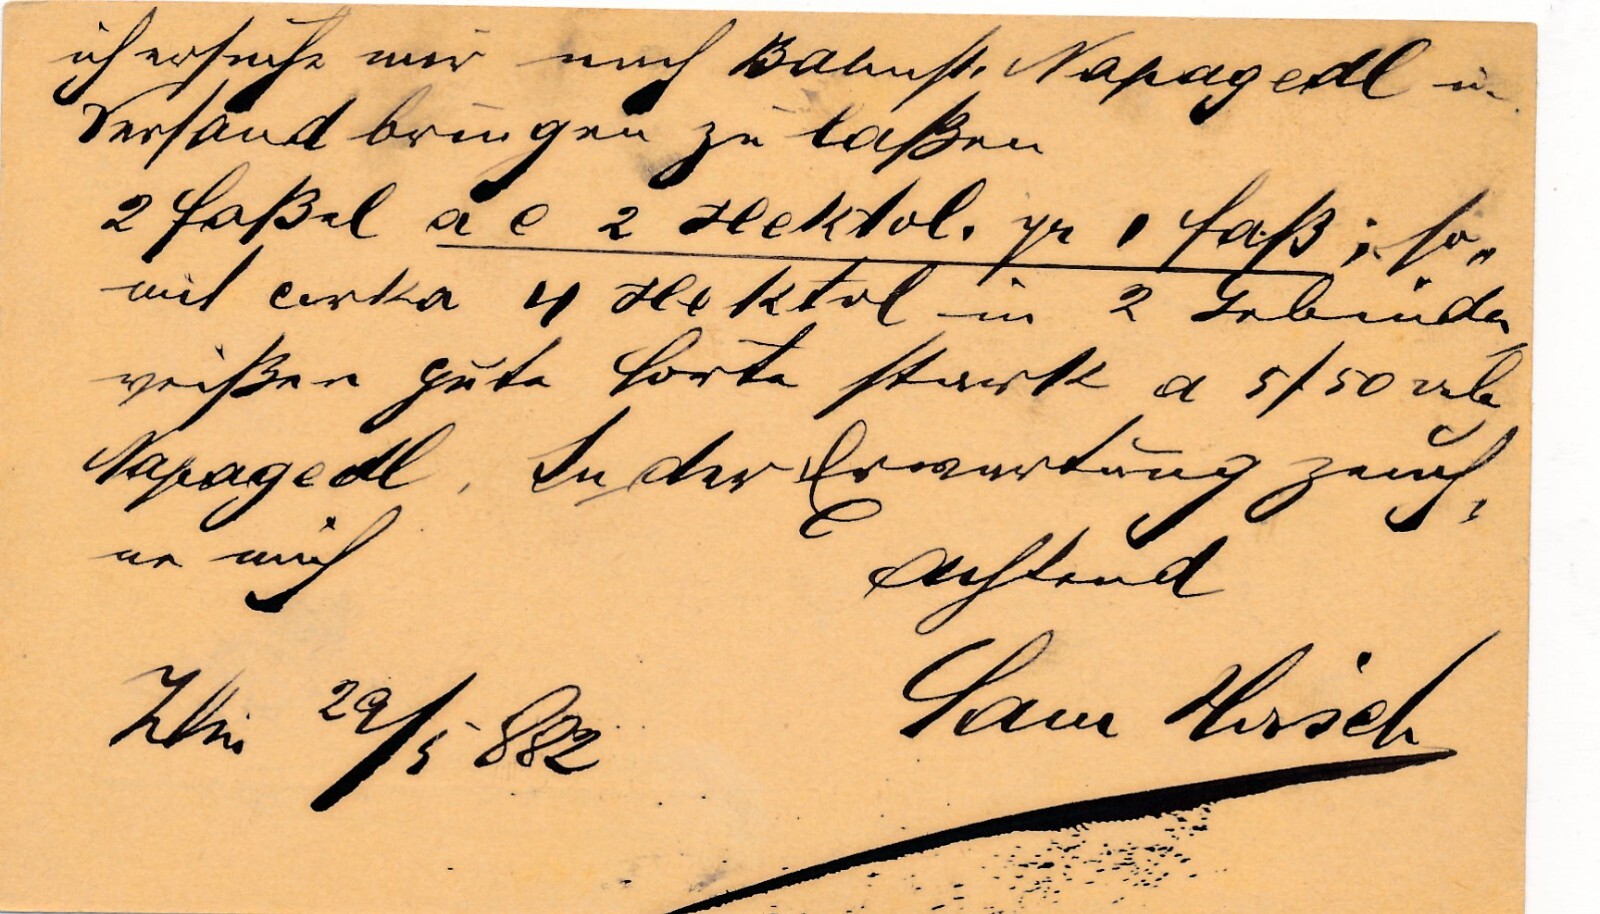 ich ersuche mir nach Bahnst. Napagedl in
Versand bringen zu laßen
2 Faßel a c 2 Hektol. pr 1 Faß; so„
mit cirka 4 Hektol in 2 Gebinden
weißen gute Sorte stark a 5/50 
Napagedl. In der Erwartung zeich„
ne mich
Achtend
Sam Hirsch
Zlin 29/5 882